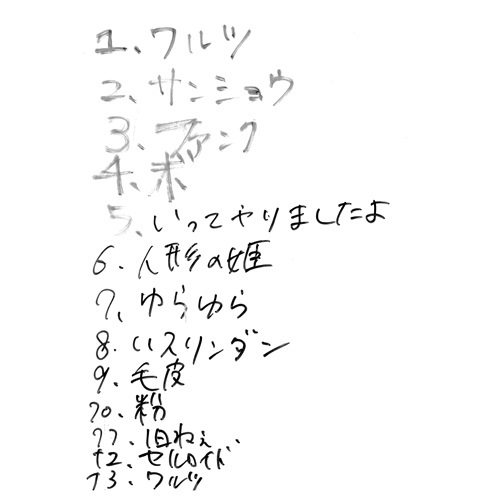 1、ワルツ
2、サンショウ
3、ファンク
4、ボ
5、いってやりましたよ
6、人形の姫
7、ゆらゆら
8、いスリンダン
9、毛皮
10、粉
11、旧ねぇ、
12、セルロイド
13、ワルツ